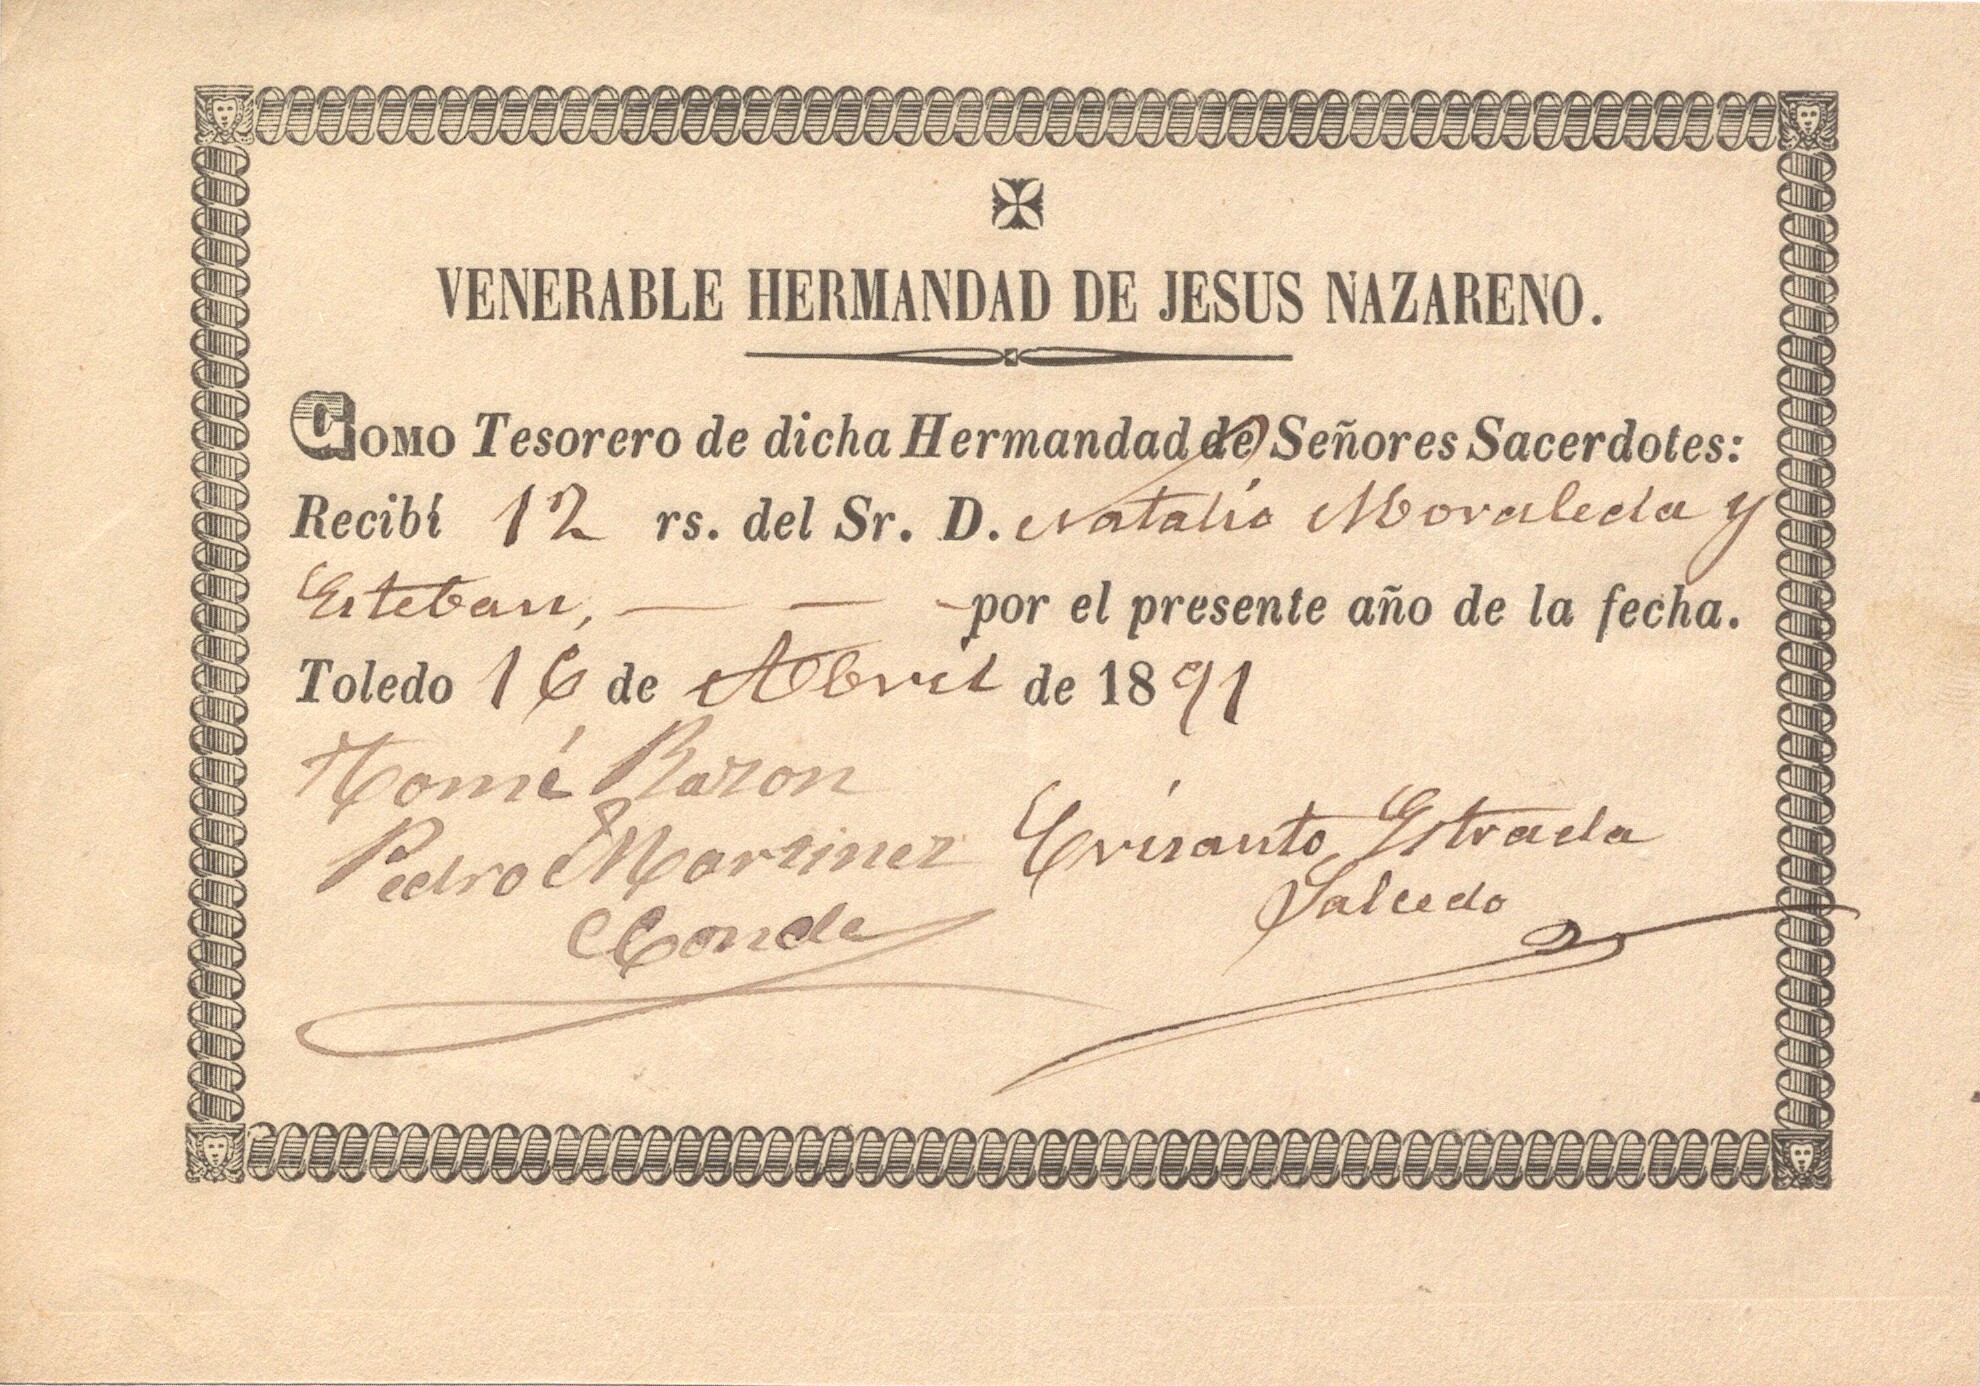 VENERABLE HERMANDAD DE JESUS NAZARENO.
COMO Tesorero de dicha Hermandad de Señores Sacerdotes:
Recibí 12 rs. del Sr. D. Natalio Moraleda y
Esteban, — — - por el presente año de la fecha.
Toledo 16 de Abril de 1891
Tomé Razon
Pedro Martinez
Conde
Crisanto Estrada
Salcedo